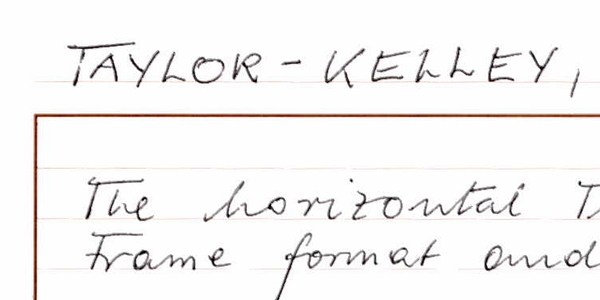 TAYLOR - KELLEY,
The horizontal
Frame format and